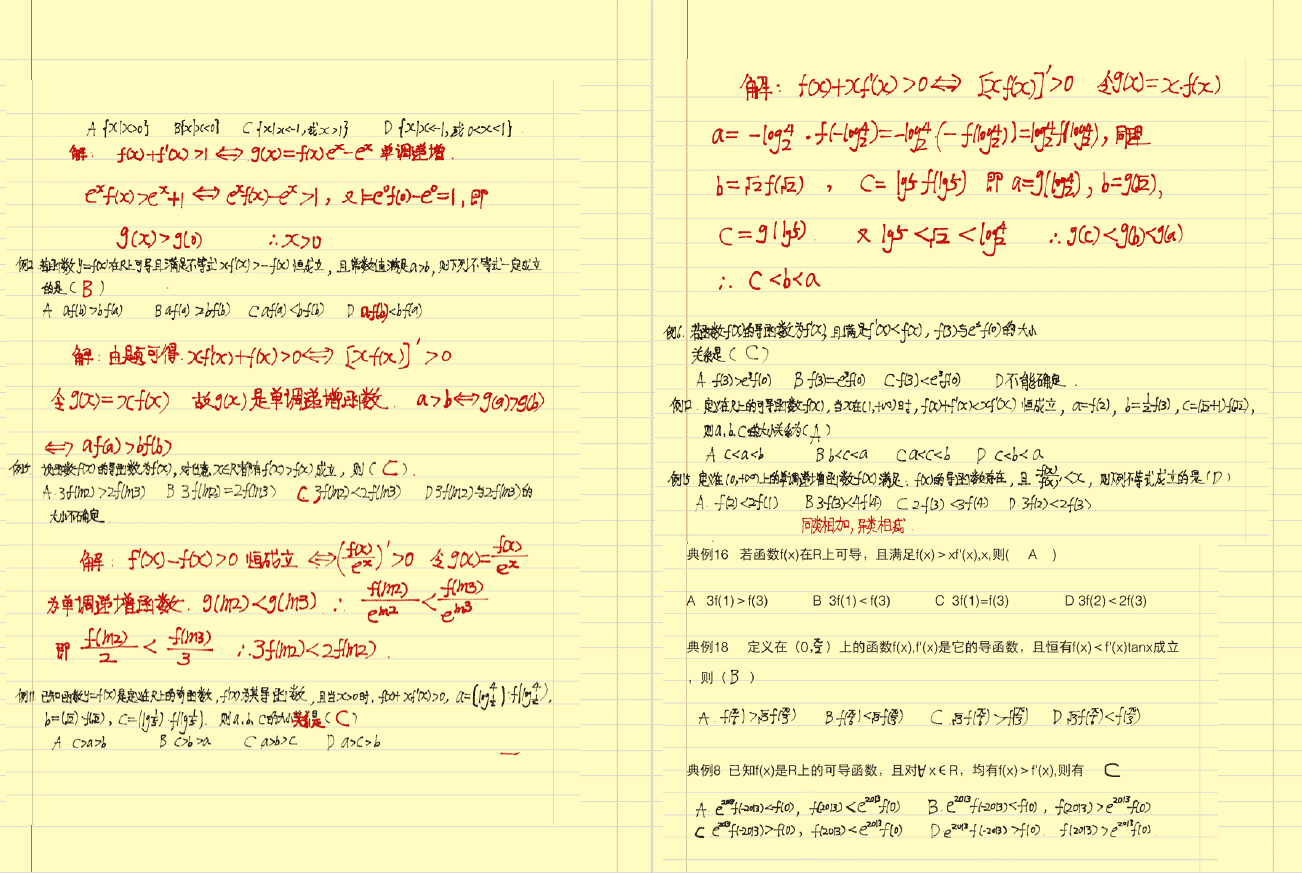 A {x|x>0} B{x|x<0} C{x|x<-1,或x>1} D{x|x<-1,或0<x<1}
解: f(x)+f'(x)>1⇔g(x)=f(x)eˣ-eˣ 单调递增.
eˣf(x)>eˣ+1⇔eˣf(x)-eˣ>1, 又1=e⁰f(0)-e⁰=1,即
g(x)>g(0) ∴x>0
例2 若函数y=f(x)在R上可导且满足不等式xf'(x)>-f(x)恒成立,且常数值满足a>b,则下列不等式一定成立
的是(B)
A af(b)>bf(a) B af(a)>bf(b) C af(a)<bf(b) D af(b)<bf(a)
解:由题可得. xf'(x)+f(x)>0⇔[xf(x)]'>0
令g(x)=xf(x) 故g(x)是单调递增函数. a>b⇔g(a)>g(b)
⇔af(a)>bf(b)
设函数f(x)的导函数为f'(x),对任意x∈R都有f'(x)>f(x)成立,则(C).
A.3f(ln2)>2f(ln3) B 3f(ln2)=2f(ln3) C 3f(ln2)<2f(ln3) D3f(ln2)与2f(ln3)的
大小不确定
解: f'(x)-f(x)>0 恒成立⇔(f(x)/eˣ)'>0 令g(x)=f(x)/eˣ
为单调递增函数. g(ln2)<g(ln3). ∴ f(ln2)/e^ln2<f(ln3)/e^ln3
即 f(ln2)/2<f(ln3)/3 ∴3f(ln2)<2f(ln2).
例11.已知函数y=f(x)是定义在R上的奇函数,f'(x)为其导函数,且当x>0时,f(x)+xf'(x)>0,
b=(√2)·f(√2), 则a,b,c的大小关系是(C)
A. c>a>b B c>b>a C a>b>c D a>c>b
解: f(x)+xf'(x)>0⇔[xf(x)]'>0 令g(x)=x·f(x)
a=-log₂4·f(-log₂4)=-log₂4·(-f(log₂4))=log₂4f(log₂4),同理
b=√2f(√2), C=lg5·f(lg5) 即a=g(log₂4),b=g(√2),
C=g(lg5) 又lg5<√2<log₂4 ∴g(c)<g(b)<g(a)
∴ C<b<a
例6.若函数f(x)的导函数为f'(x),且满足f'(x)<f(x),f(3)与e³f(0)的大小
关系是(C)
A.f(3)>e³f(0) B f(3)=e³f(0) C f(3)<e³f(0) D不能确定.
例12.定义在R上的可导函数f(x),当x在(1,+∞)时,f(x)+f'(x)<xf'(x)恒成立,a=f(2),b=½f(3),c=(√2+1)f(√2),
则a,b,c的大小关系为(A)
A c<a<b B b<c<a C a<c<b D c<b<a
例15 定义在(0,+∞)上的单调递增函数f(x)满足.f(x)的导函数存在,且f(x)/f'(x)<x,则下列不等式成立的是(D)
A. f(2)<2f(1) B 3f(3)<4f(4) C 2f(3)<3f(4) D.3f(2)<2f(3)
同类相加,异类相减.
典例16 若函数f(x)在R上可导,且满足f(x)>xf'(x),x,则( A )
A 3f(1)>f(3) B 3f(1)<f(3) C 3f(1)=f(3) D 3f(2)<2f(3)
典例18 定义在(0,π/2)上的函数f(x),f'(x)是它的导函数,且恒有f(x)<f'(x)tanx成立
,则(B)
典例8 已知f(x)是R上的可导函数,且对∀x∈R,均有f(x)>f'(x),则有 C
A.e²⁰¹³f(-2013)<f(0),f(2013)<e²⁰¹³f(0) B.e²⁰¹³f(-2013)<f(0),f(2013)>e²⁰¹³f(0)
C e²⁰¹³f(-2013)>f(0),f(2013)<e²⁰¹³f(0) D e²⁰¹³f(-2013)>f(0).f(2013)>e²⁰¹³f(0).